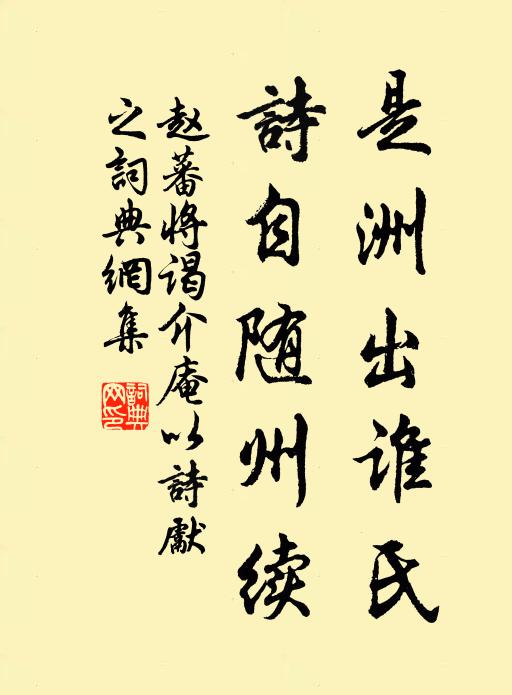 是洲出谁氏
詩自随州续
赵蕃将谒介庵以詩獻
之詞典網集
詞典
网印